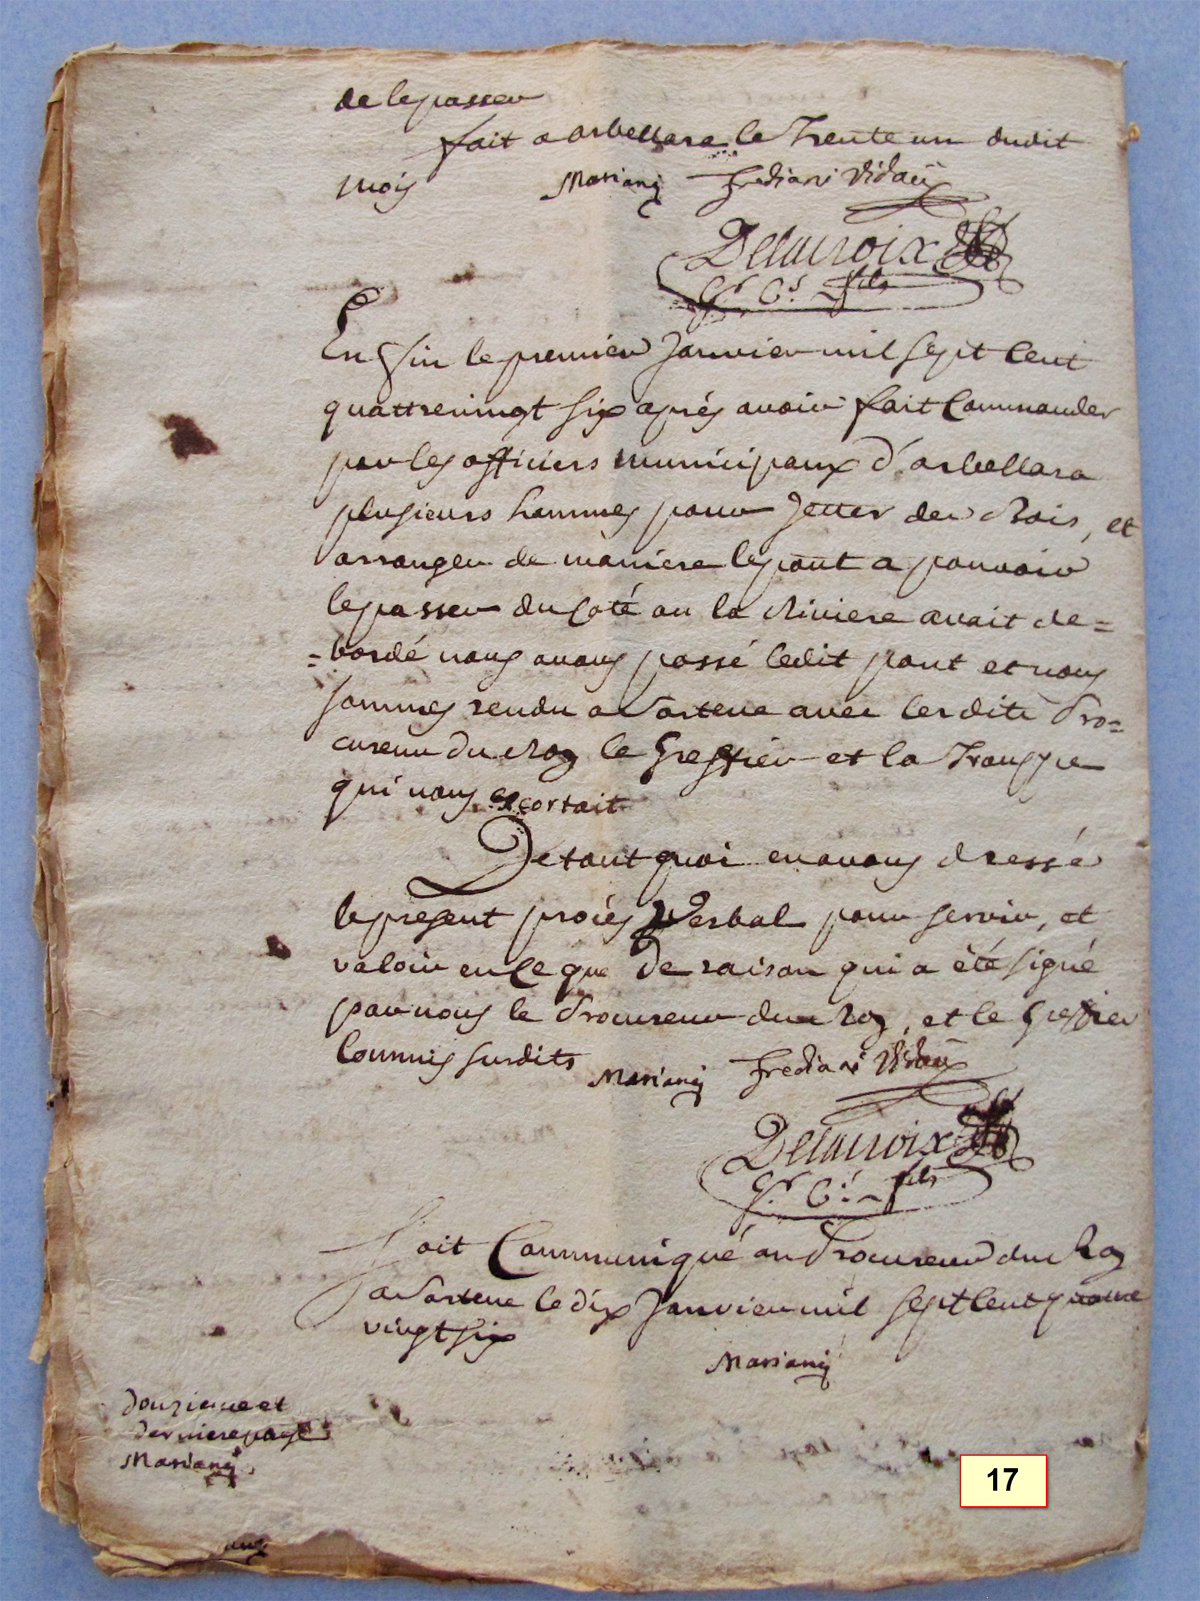 de le passer
fait a arbellara le Trente un dudit
mois Mariani Frediani Vidau
Delacroix
Gr. Cs. fils
Enfin le premier Janvier mil sept Cent
quattrevingt six aprés avoir fait Commander
par les officiers municipaux d'arbellara
plusieurs hommes pour Jetter des Bois, et
arranger de maniere le pont a pouvoir
le passer du Coté ou la Riviere avait de=
=bordé nous avons passé ledit pont et nous
sommes rendu a Sartene avec lesdits Pro=
cureur du Roy le Greffier et la Trouppe
qui nous escortait
De tout quoi en avons dressé
le present procés Verbal pour servir, et
valoir en Ce que De raison qui a été signé
par nous le Procureur du Roy, et le Greffier
Commis susdits Mariani Frediani Vidau
Delacroix
Gr. Cs. fils
Soit Communiqué au Procureur du Roy
a Sartene le dix Janvier mil sept Cent quatre
vingt six
Mariani
douzieme et
derniere page
Mariani
17